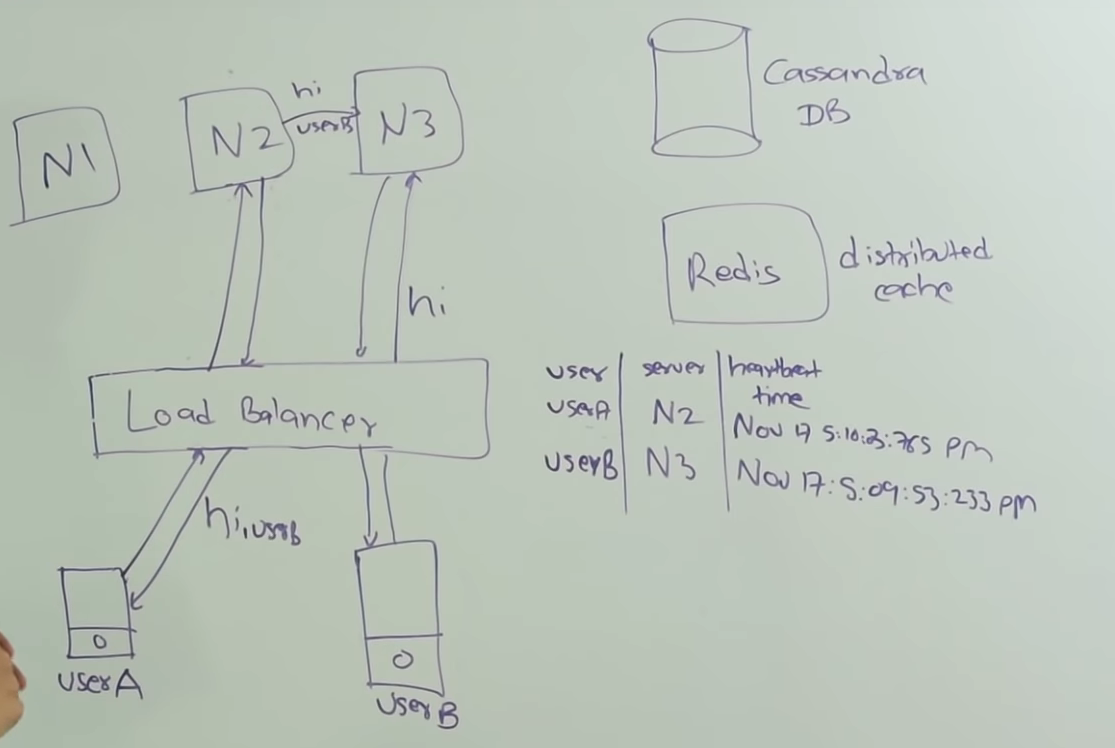 N1
N2
hi
userB
N3
hi
Load Balancer
hi, userB
userA
userB
Cassandra
DB
Redis
distributed
cache
user | server | heartbeat
time
userA | N2 | Nov 17 5:10:23:765 pm
userB | N3 | Nov 17:5:09:53:233 pm